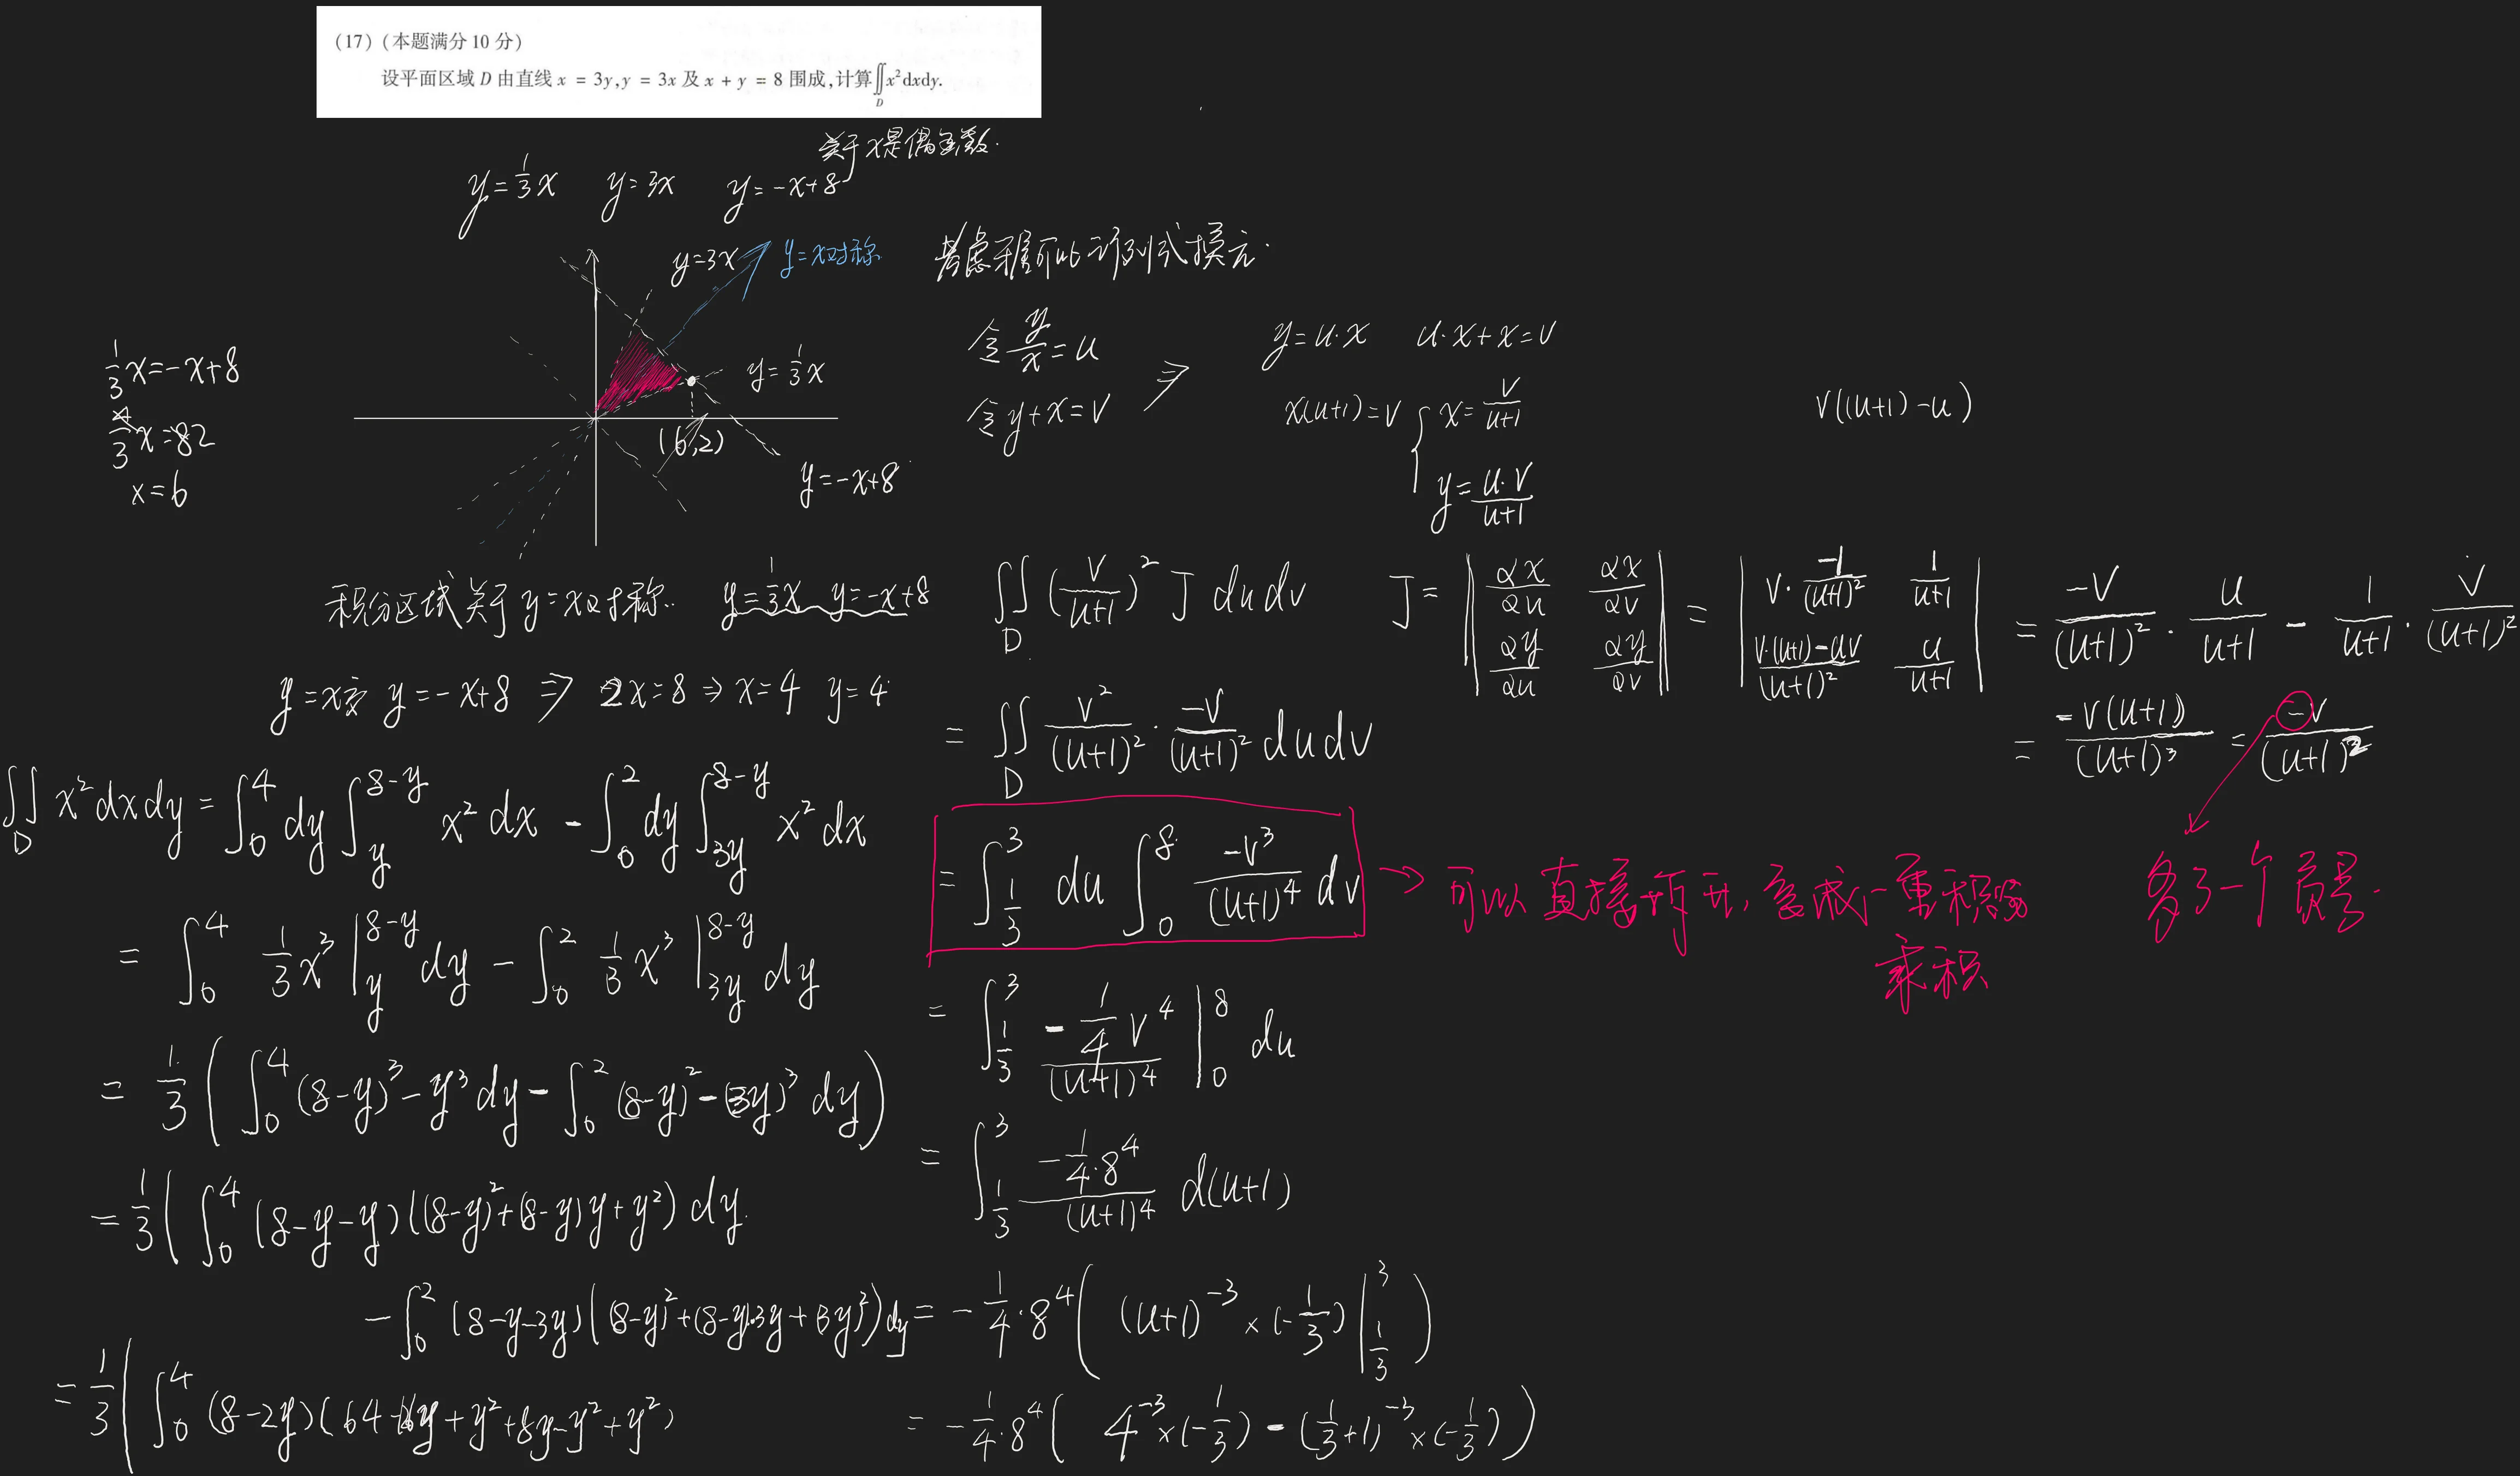 (17) (本题满分 10 分)
设平面区域 D 由直线 x = 3y, y = 3x 及 x + y = 8 围成, 计算∬_D x²dxdy.
关于x是偶函数.
y=1/3x y=3x y=-x+8
y=3x
y=x对称
y=1/3x
(6,2)
y=-x+8
1/3x=-x+8
4/3x=82
x=6
积分区域关于y=x对称.. y=1/3x y=-x+8
y=x交y=-x+8 ⇒ 2x=8 ⇒ x=4 y=4
∬_D x²dxdy = ∫_0^4 dy ∫_y^{8-y} x² dx - ∫_0^2 dy ∫_{3y}^{8-y} x² dx
= ∫_0^4 1/3x³ |_y^{8-y} dy - ∫_0^2 1/3x³ |_{3y}^{8-y} dy
= 1/3 ( ∫_0^4 (8-y)³-y³dy - ∫_0^2 (8-y)²-(3y)³dy )
= 1/3 ( ∫_0^4 (8-y-y)((8-y)²+(8-y)y+y²) dy
- ∫_0^2 (8-y-3y)((8-y)²+(8-y)3y+(3y)²)dy
= 1/3 ( ∫_0^4 (8-2y)(64-16y+y²+8y-y²+y²)
考虑雅可比行列式换元.
令 y/x=u
令 y+x=v
⇒
y=u·x u·x+x=v
x(u+1)=v { x=v/(u+1)
y=u·v/(u+1)
v((u+1)-u)
∬_D (v/(u+1))² J dudv
J= |∂x/∂u ∂x/∂v; ∂y/∂u ∂y/∂v| = |v·-1/(u+1)² 1/(u+1); (v·(u+1)-uv)/(u+1)² u/(u+1)| = -v/(u+1)² · u/(u+1) - 1/(u+1) · v/(u+1)²
= -v(u+1)/(u+1)³ = -v/(u+1)²
多了一个负号.
= ∬_D v²/(u+1)² · -v/(u+1)² dudv
= ∫_{1/3}^3 du ∫_0^8 -v³/(u+1)⁴ dv
→ 可以直接拆开, 变成一重积分
乘积
= ∫_{1/3}^3 -1/4 v⁴/(u+1)⁴ |_0^8 du
= ∫_{1/3}^3 -1/4·8⁴/(u+1)⁴ d(u+1)
= -1/4·8⁴ ( (u+1)⁻³×(-1/3) |_{1/3}^3 )
= -1/4·8⁴ ( 4⁻³×(-1/3) - (1/3+1)⁻³×(-1/3) )